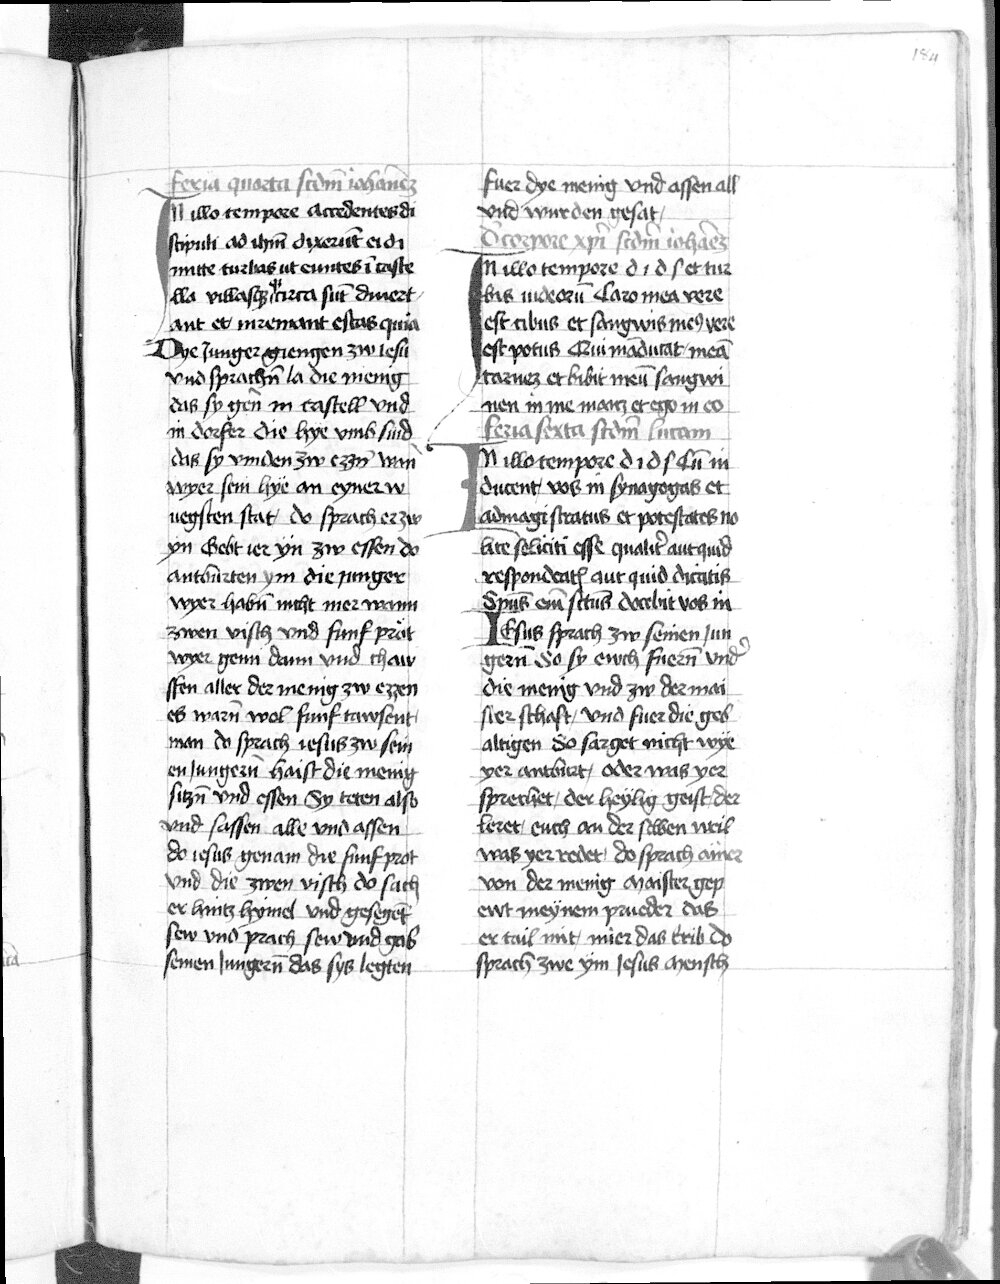 184
feria quarta scdm̄ ioha̅ez
In illo tempore Accedentes di
scipuli ad ihm̄ dixerūt ei di
mitte turbas ut euntes ī caste
lla villasqz q̄ circa sūt diuert
ant et inveniant escas quia
Dye Junger giengen zw iesu
vnd sprachn̄ la die menig
das sy gen̄ in castell vnd
in dorfer die hye vmb sind
das sy vinden zw ezzn̄ wan̄
wyer sein hye an eyner w
uegsten stat do sprach er zw
yn Gebt ier yn zw essen do
antbürten ym die junger
wyer habn̄ nicht mer wann
zwen visch vnd funf prot
wyer genn dann vnd chaw
ffen aller der menig zw ezzen
es warn̄ wol funf tawsent
man do sprach iesus zw sein
en Jungern̄ haist die menig
sitzn̄ vnd essen Sy teten also
vnd sassen alle vnd assen
do iesus genam die funf prot
vnd die zwen visch do sach
er hintz hymel vnd gesegēt
sew vnd prach sew vnd gab
seinen Jungern̄ das sys legten
fuer dye menig vnd assen all
vnd wurden gesat
De corpore xpi scdm̄ ioha̅ez
In illo tempore d i d s et tur
bis iudeorū Caro mea vere
est cibus et sangwis meꝰ vere
est potus Qui māducat meā
carnez et bibit meū sangwi
nen in me manz et ego in eo
feria sexta scdm̄ lucam
In illo tempore d i d s Cū in
ducent vos in synagogas et
ad magistratus et potestates no
lite soliciti esse qualit̄ aut quid
respondeatꝭ aut quid dicatis
Spūs em̄ sctūs docebit vos in
Iesus sprach zw seinen Jun
gern̄ So sy ewch fuern̄ vnder
die menig vnd zw der mai
sterschaft vnd fuer die geb
altigen So sarget nicht wye
yer antburt oder was yer
sprechet der heylig geist der
leret euch an der selben weil
was yer redet do sprach ainer
von der menig Maister gep
ewt meynem prueder das
er tail mit mier das erib do
sprach zwe ym Jesus Mensch